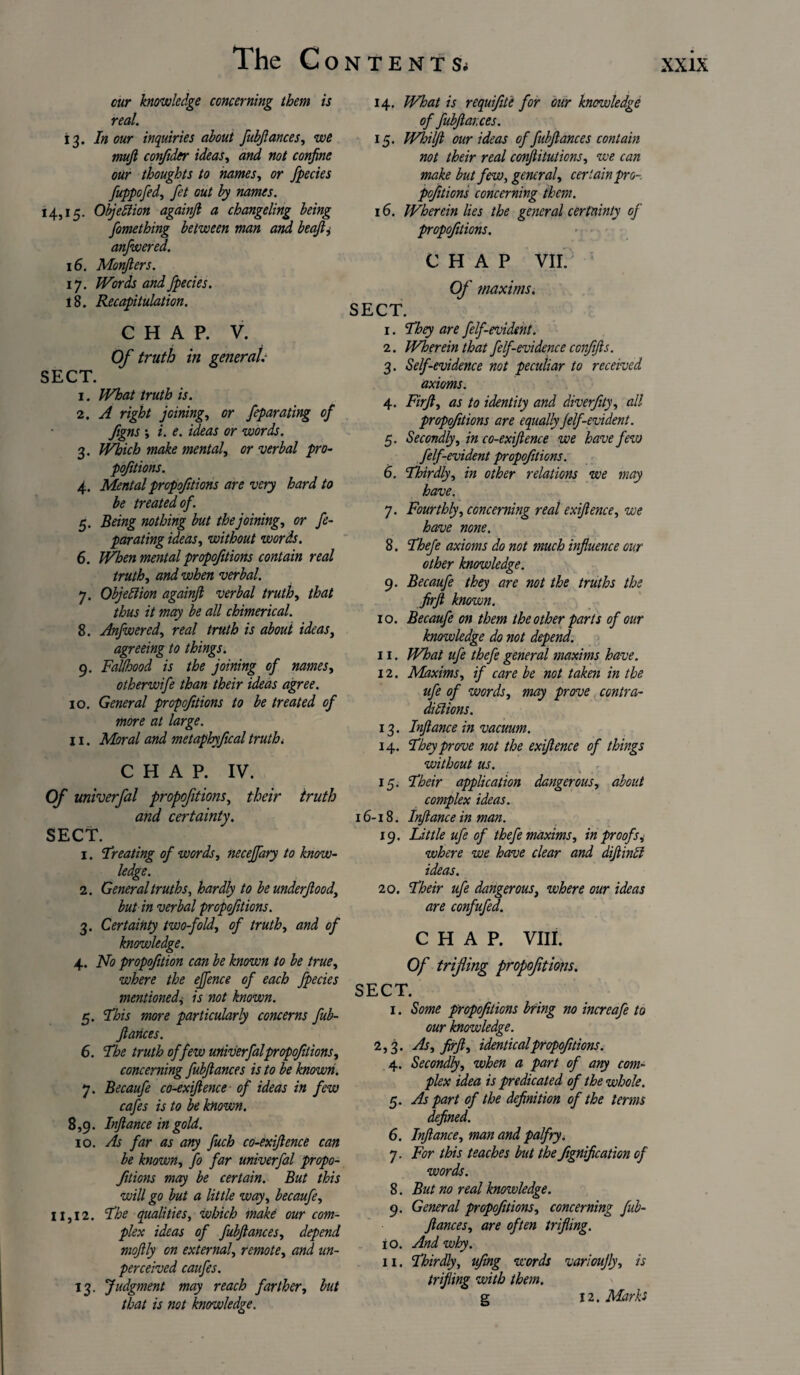 The CONTENTS. xxix
our knowledge concerning them is
real.
13. In our inquiries about ſubſtances, we
muſt conſider ideas, and not confine
our thoughts to names, or ſpecies
ſuppoſed, ſet out by names.
14,15. Objection againſt a changeling being
ſomething between man and beaſt,
anſwered.
16. Monſters.
17. Words and ſpecies.
18. Recapitulation.
CHAP. V.
Of truth in general.
SECT.
1. What truth is.
2. A right joining, or ſeparating of
ſigns; i. e. ideas or words.
3. Which make mental, or verbal pro-
poſitions.
4. Mental propoſitions are very hard to
be treated of.
5. Being nothing but the joining, or ſe-
parating ideas, without words.
6. When mental propoſitions contain real
truth, and when verbal.
7. Objection againſt verbal truth, that
thus it may be all chimerical.
8. Anſwered, real truth is about ideas,
agreeing to things.
9. Falſhood is the joining of names,
otherwiſe than their ideas agree.
10. General propoſitions to be treated of
more at large.
11. Moral and metaphyſical truth.
CHAP. IV.
Of univerſal propoſitions, their truth
and certainty.
SECT.
1. Treating of words, neceſſary to know-
ledge.
2. General truths, hardly to be underſtood,
but in verbal propoſitions.
3. Certainty two-fold, of truth, and of
knowledge.
4. No propoſition can be known to be true,
where the eſſence of each ſpecies
mentioned, is not known.
5. This more particularly concerns ſub-
ſtances.
6. The truth of few univerſal propoſitions,
concerning ſubſtances is to be known.
7. Becauſe co-exiſtence of ideas in few
caſes is to be known.
8,9. Inſtance in gold.
10. As far as any ſuch co-exiſtence can
be known, ſo far univerſal propo-
ſitions may be certain. But this
will go but a little way, becauſe,
11,12. The qualities, which make our com-
plex ideas of ſubſtances, depend
moſtly on external, remote, and un-
perceived cauſes.
13. Judgment may reach farther, but
that is not knowledge.
14. What is requiſite for our knowledge
of ſubſtances.
15. Whilſt our ideas of ſubſtances contain
not their real conſtitutions, we can
make but few, general, certain pro-
poſitions concerning them.
16. Wherein lies the general certainty of
propoſitions.
CHAP VII.
Of maxims.
SECT.
1. They are ſelf-evident.
2. Wherein that ſelf-evidence conſiſts.
3. Self-evidence not peculiar to received
axioms.
4. Firſt, as to identity and diverſity, all
propoſitions are equally ſelf-evident.
5. Secondly, in co-exiſtence we have few
ſelf-evident propoſitions.
6. Thirdly, in other relations we may
have.
7. Fourthly, concerning real exiſtence, we
have none.
8. Theſe axioms do not much influence our
other knowledge.
9. Becauſe they are not the truths the
firſt known.
10. Becauſe on them the other parts of our
knowledge do not depend.
11. What uſe theſe general maxims have.
12. Maxims, if care be not taken in the
uſe of words, may prove contra-
dictions.
13. Inſtance in vacuum.
14. They prove not the exiſtence of things
without us.
15. Their application dangerous, about
complex ideas.
16-18. Inſtance in man.
19. Little uſe of theſe maxims, in proofs,
where we have clear and diſtinct
ideas.
20. Their uſe dangerous, where our ideas
are confuſed.
CHAP. VIII.
Of trifling propoſitions.
SECT.
1. Some propoſitions bring no increaſe to
our knowledge.
2,3. As, firſt, identical propoſitions.
4. Secondly, when a part of any com-
plex idea is predicated of the whole.
5. As part of the definition of the terms
defined.
6. Inſtance, man and palfry.
7. For this teaches but the ſignification of
words.
8. But no real knowledge.
9. General propoſitions, concerning ſub-
ſtances, are often trifling.
10. And why.
11. Thirdly, uſing words variouſly, is
trifling with them.
g 12. Marks